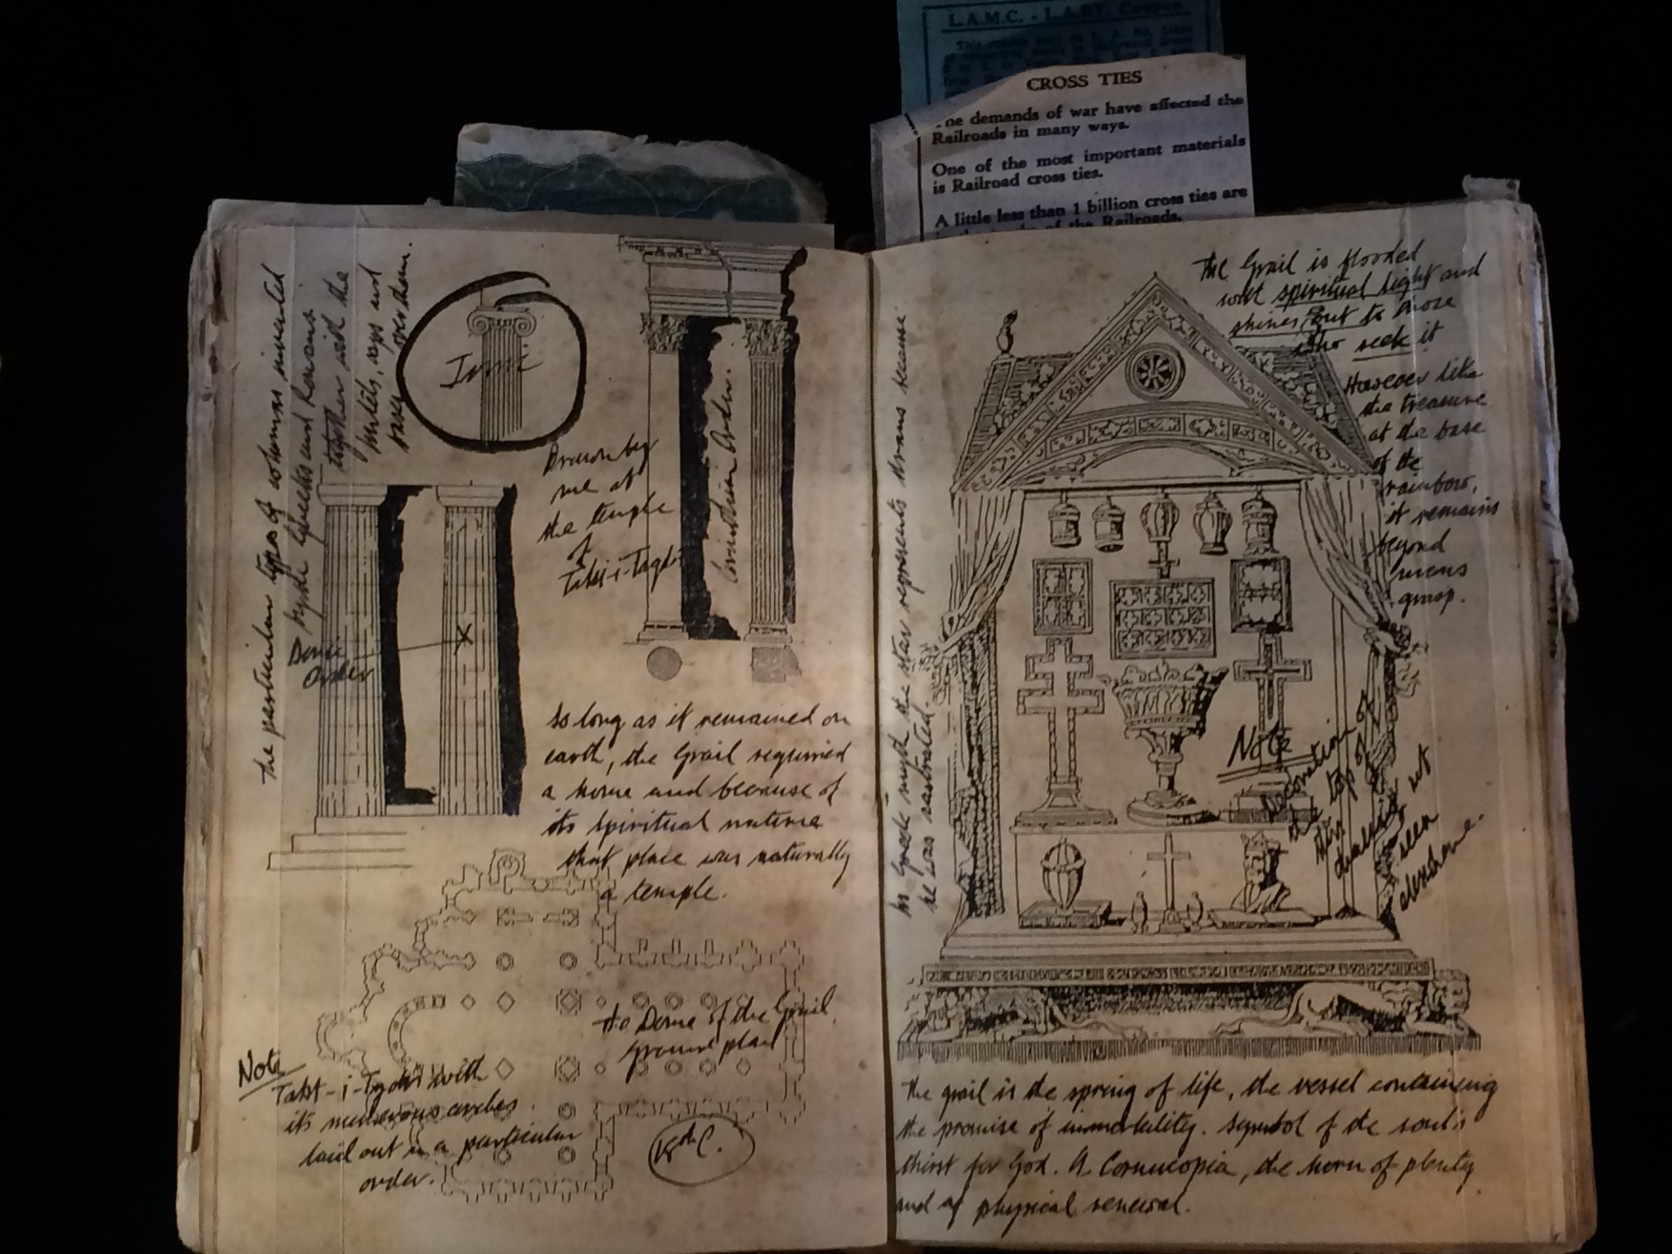 L.A.M.C. - L.A.RY. Coupon
CROSS TIES
The demands of war have affected the
Railroads in many ways.
One of the most important materials
is Railroad cross ties.
A little less than 1 billion cross ties are
of the Railroads.
the particular types of columns invented
by the Greeks and Romans
together with the
lintels, says not
over them.
Ionic
Drawn by
me at
the temple
of
Takt-i-Taqdis
Corinthian Order.
Doric
Order
So long as it remained on
earth, the Grail required
a home and because of
its spiritual nature
that place was naturally
a temple.
the Dome of the Grail
Ground plan
Note
Takt-i-Taqdis with
its numerous arches
laid out in a particular
order.
C.
In Greek myth the star represents
he was castrated.
The Grail is flooded
with spiritual light and
shines out to those
who seek it
However like
the treasure
at the base
of the
rainbow,
it remains
beyond
mens
grasp.
Note
Decoration of
the top of
this
not
seen
elsewhere.
The grail is the spring of life, the vessel containing
the promise of immortality. Symbol of the soul's
thirst for God. A Cornucopia, the horn of plenty
and of physical renewal.